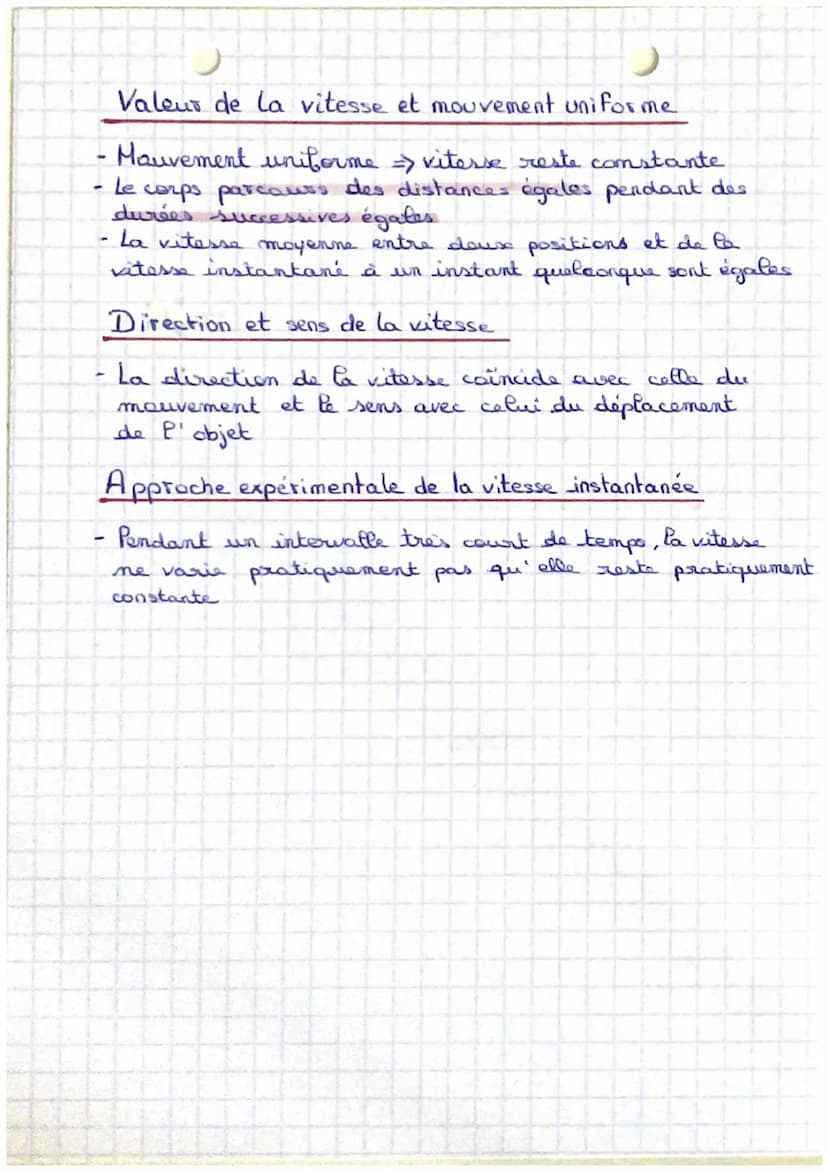 Valeur de la vitesse et mouvement uniforme
- Mouvement uniforme => vitesse reste constante
- Le corps parcours des distances égales pendant des
durées successives égales
- La vitesse moyenne entre deux positions et de la
vitesse instantané à un instant quelconque sont égales
Direction et sens de la vitesse
- La direction de la vitesse coïncide avec celle du
mouvement et le sens avec celui du déplacement
de l'objet
Approche expérimentale de la vitesse instantanée
- Pendant un intervalle très court de temps, la vitesse
ne varie pratiquement pas qu'elle reste pratiquement
constante